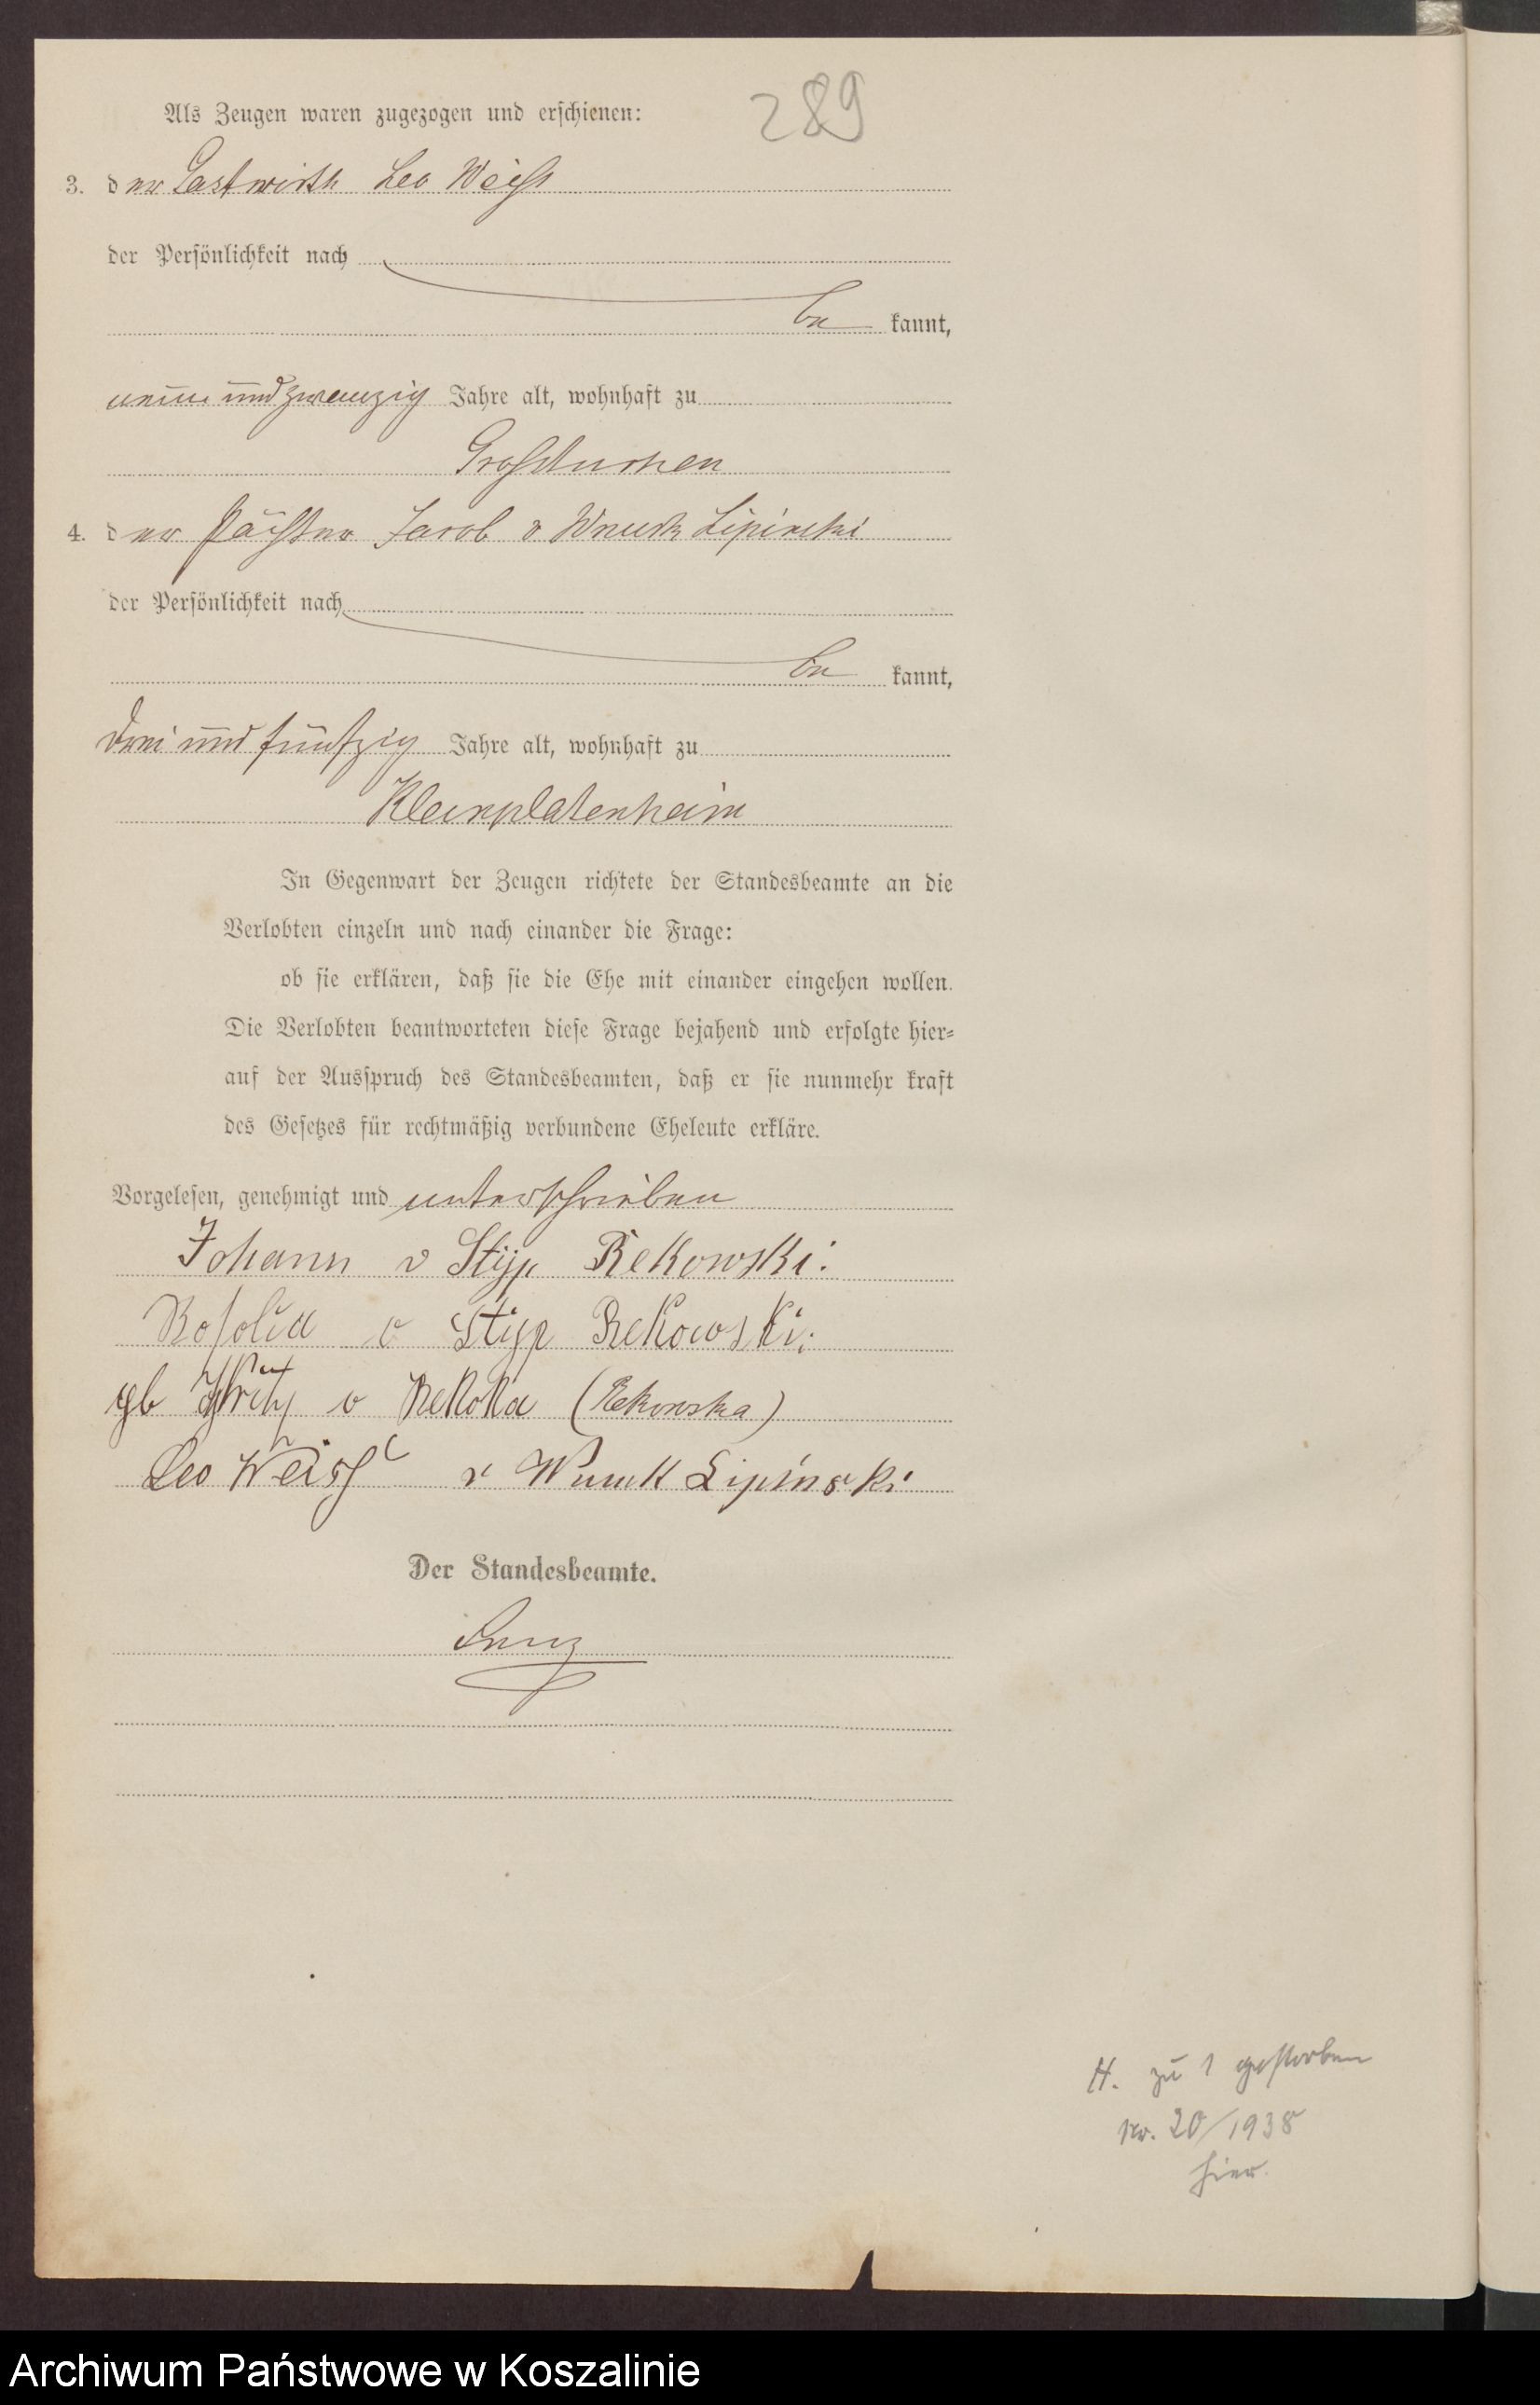 289
Als Zeugen waren zugezogen und erschienen:
3. der Gastwirth Leo Weiß
der Persönlichkeit nach
be kannt,
neun und zwanzig Jahre alt, wohnhaft zu
Großtuchen
4. der Pächter Jacob v Wnuck Lipinski
der Persönlichkeit nach
be kannt,
drei und fünfzig Jahre alt, wohnhaft zu
Kleinplatenheim
In Gegenwart der Zeugen richtete der Standesbeamte an die
Verlobten einzeln und nach einander die Frage:
ob sie erklären, daß sie die Ehe mit einander eingehen wollen.
Die Verlobten beantworteten diese Frage bejahend und erfolgte hier-
auf der Ausspruch des Standesbeamten, daß er sie nunmehr kraft
des Gesetzes für rechtmäßig verbundene Eheleute erkläre.
Vorgelesen, genehmigt und unterschrieben
Johann v Styp Rekowski.
Rosolia v Styp Rekowski.
gb v Rekoka (Rekowska)
Leo Weiß v Wnuck Lipinski
Der Standesbeamte.
H. zu 1 gestorben
No. 20/1938
hier.
Archiwum Państwowe w Koszalinie